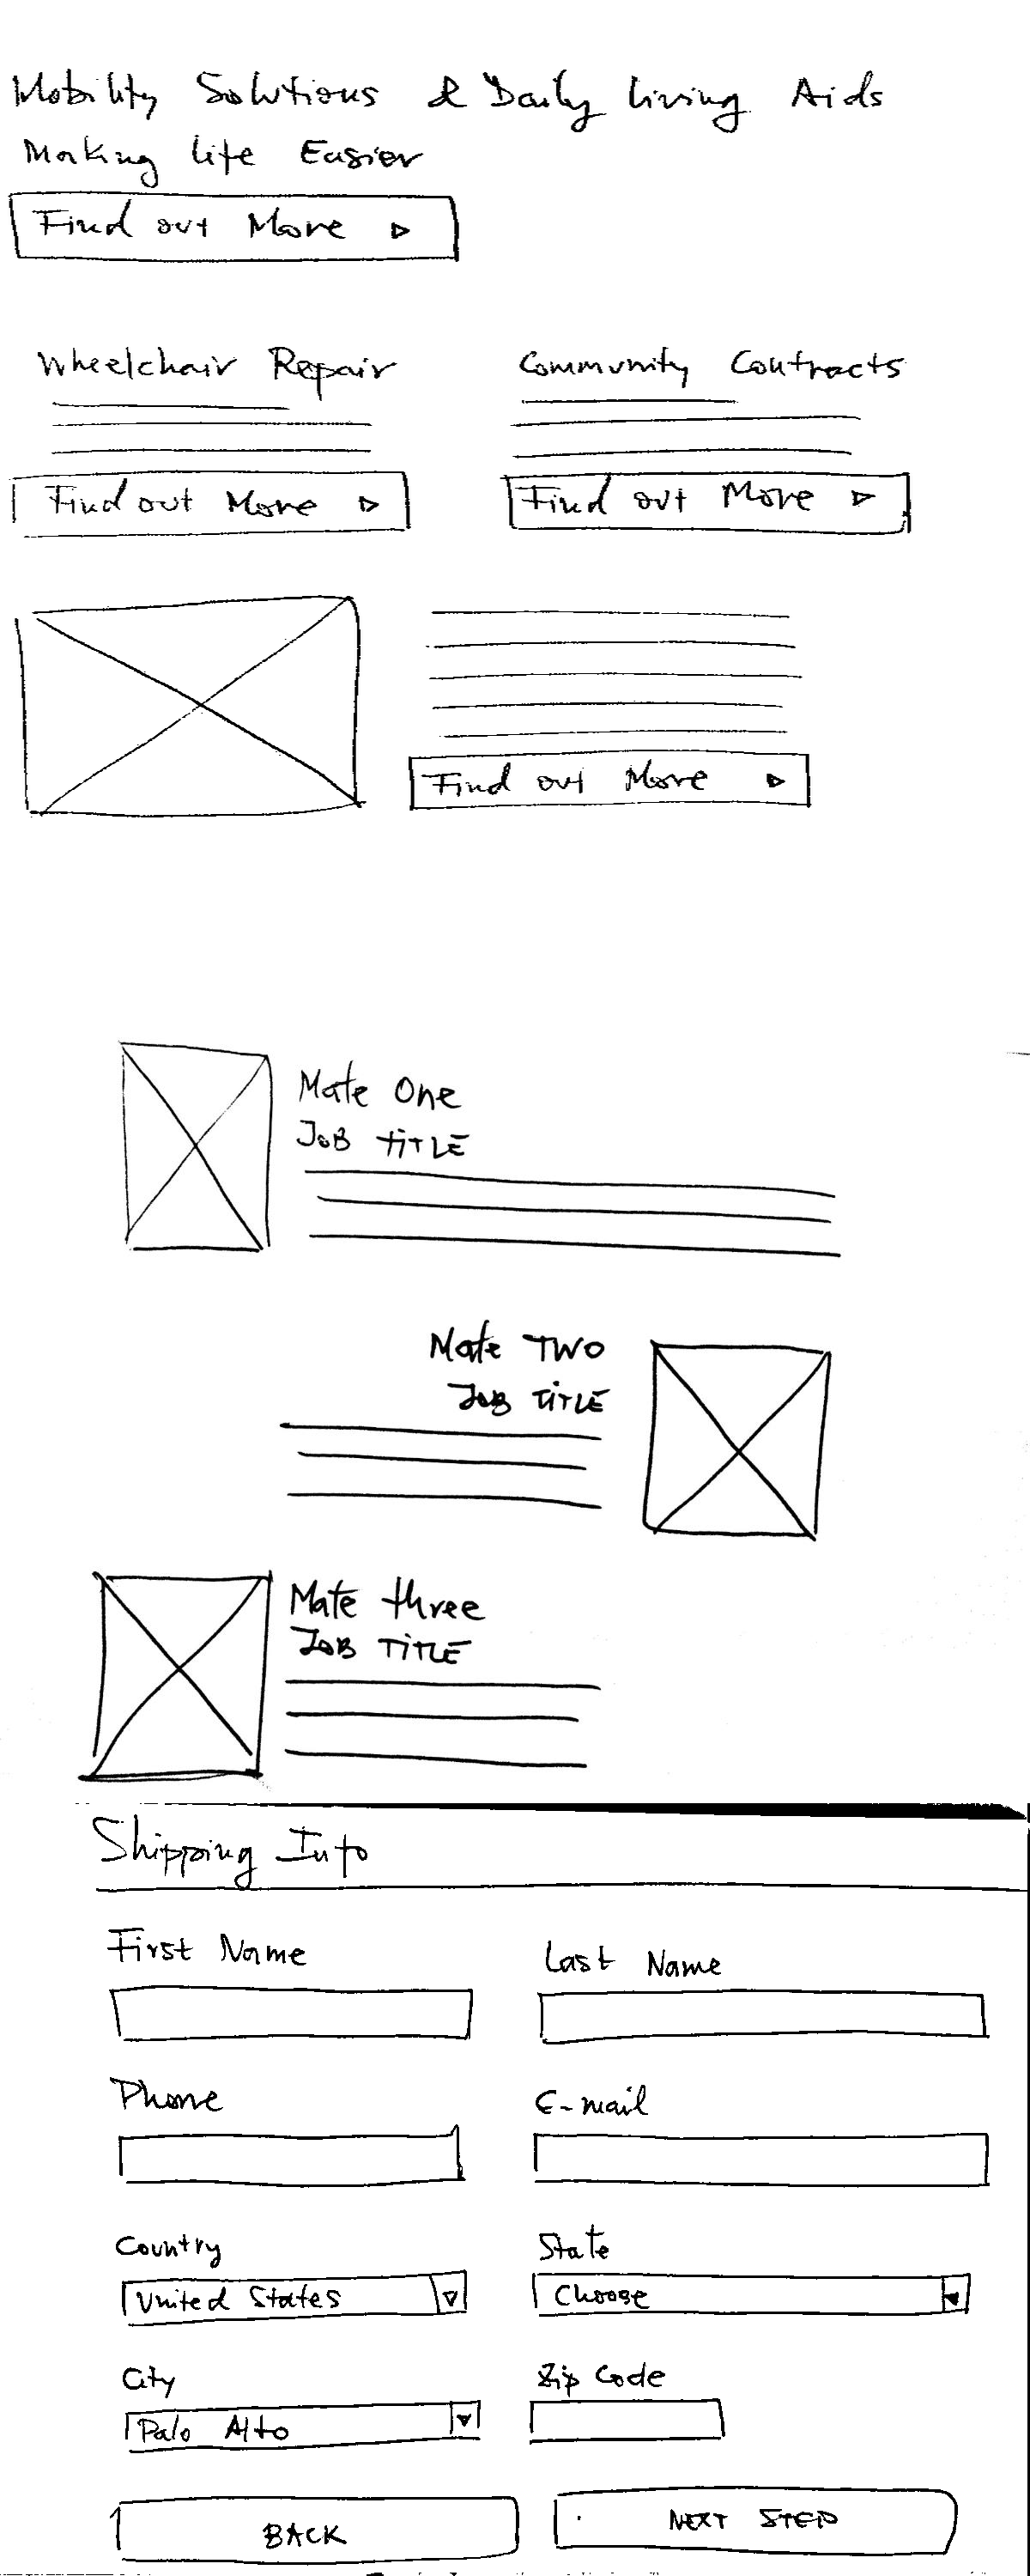 Mobility Solutions & Daily living Aids
Making life Easier
Find out More
Wheelchair Repair
Community Contracts
Find out More
Find out More
Find out More
Mate One
JOB TITLE
Mate TWO
JOB TITLE
Mate three
JOB TITLE
Shipping Info
First Name
Last Name
Phone
E-mail
Country
State
United States
Choose
City
Zip Code
Palo Alto
BACK
NEXT STEP